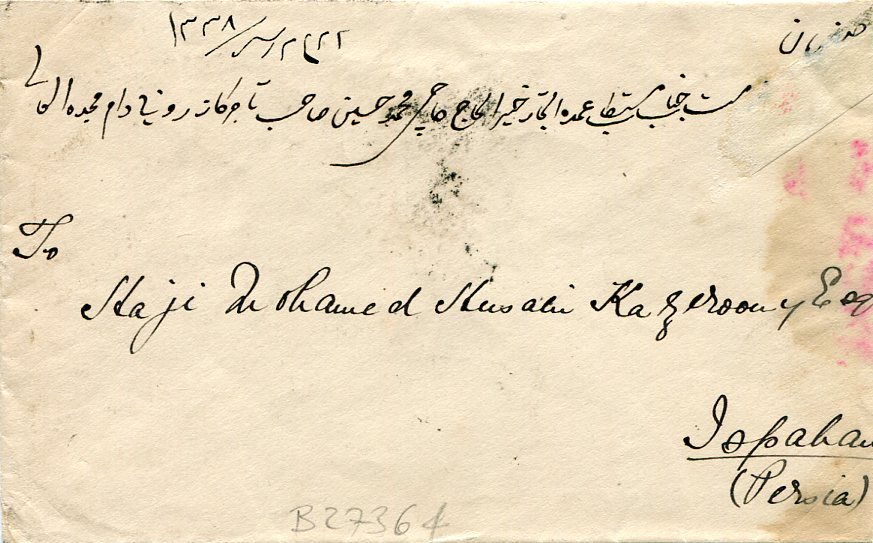 ۱۳۳۸
جناب عمدة التجار خیر الحاج حاجی محمد حسین صاحب تاجر کازرونی دام مجده العالی
To
Haji Mohamed Husain Kazeroony Esq
Ispahan
(Persia)
B27364